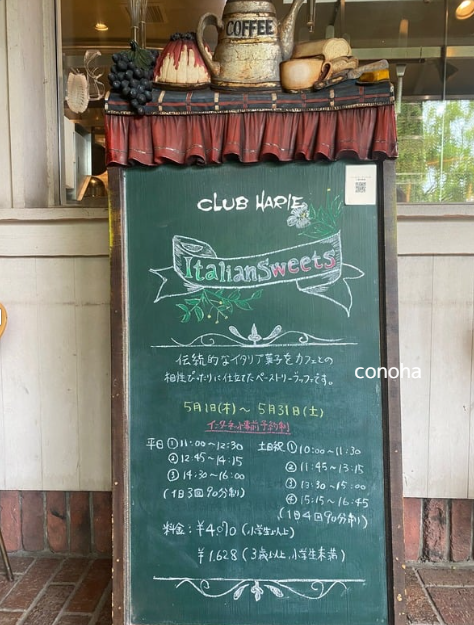 COFFEE
CLUB HARIE
Italian Sweets
伝統的なイタリア菓子をカフェとの
相性ぴったりに仕立てたペーストリーブッフェです。
conoha
5月1日(木)～5月31日(土)
インターネット事前予約制
平日 ① 11:00～12:30
② 12:45～14:15
③ 14:30～16:00
(1日3回90分制)
土日祝 ① 10:00～11:30
② 11:45～13:15
③ 13:30～15:00
④ 15:15～16:45
(1日4回90分制)
料金：¥4,070 (小学生以上)
¥1,628 (3歳以上、小学生未満)